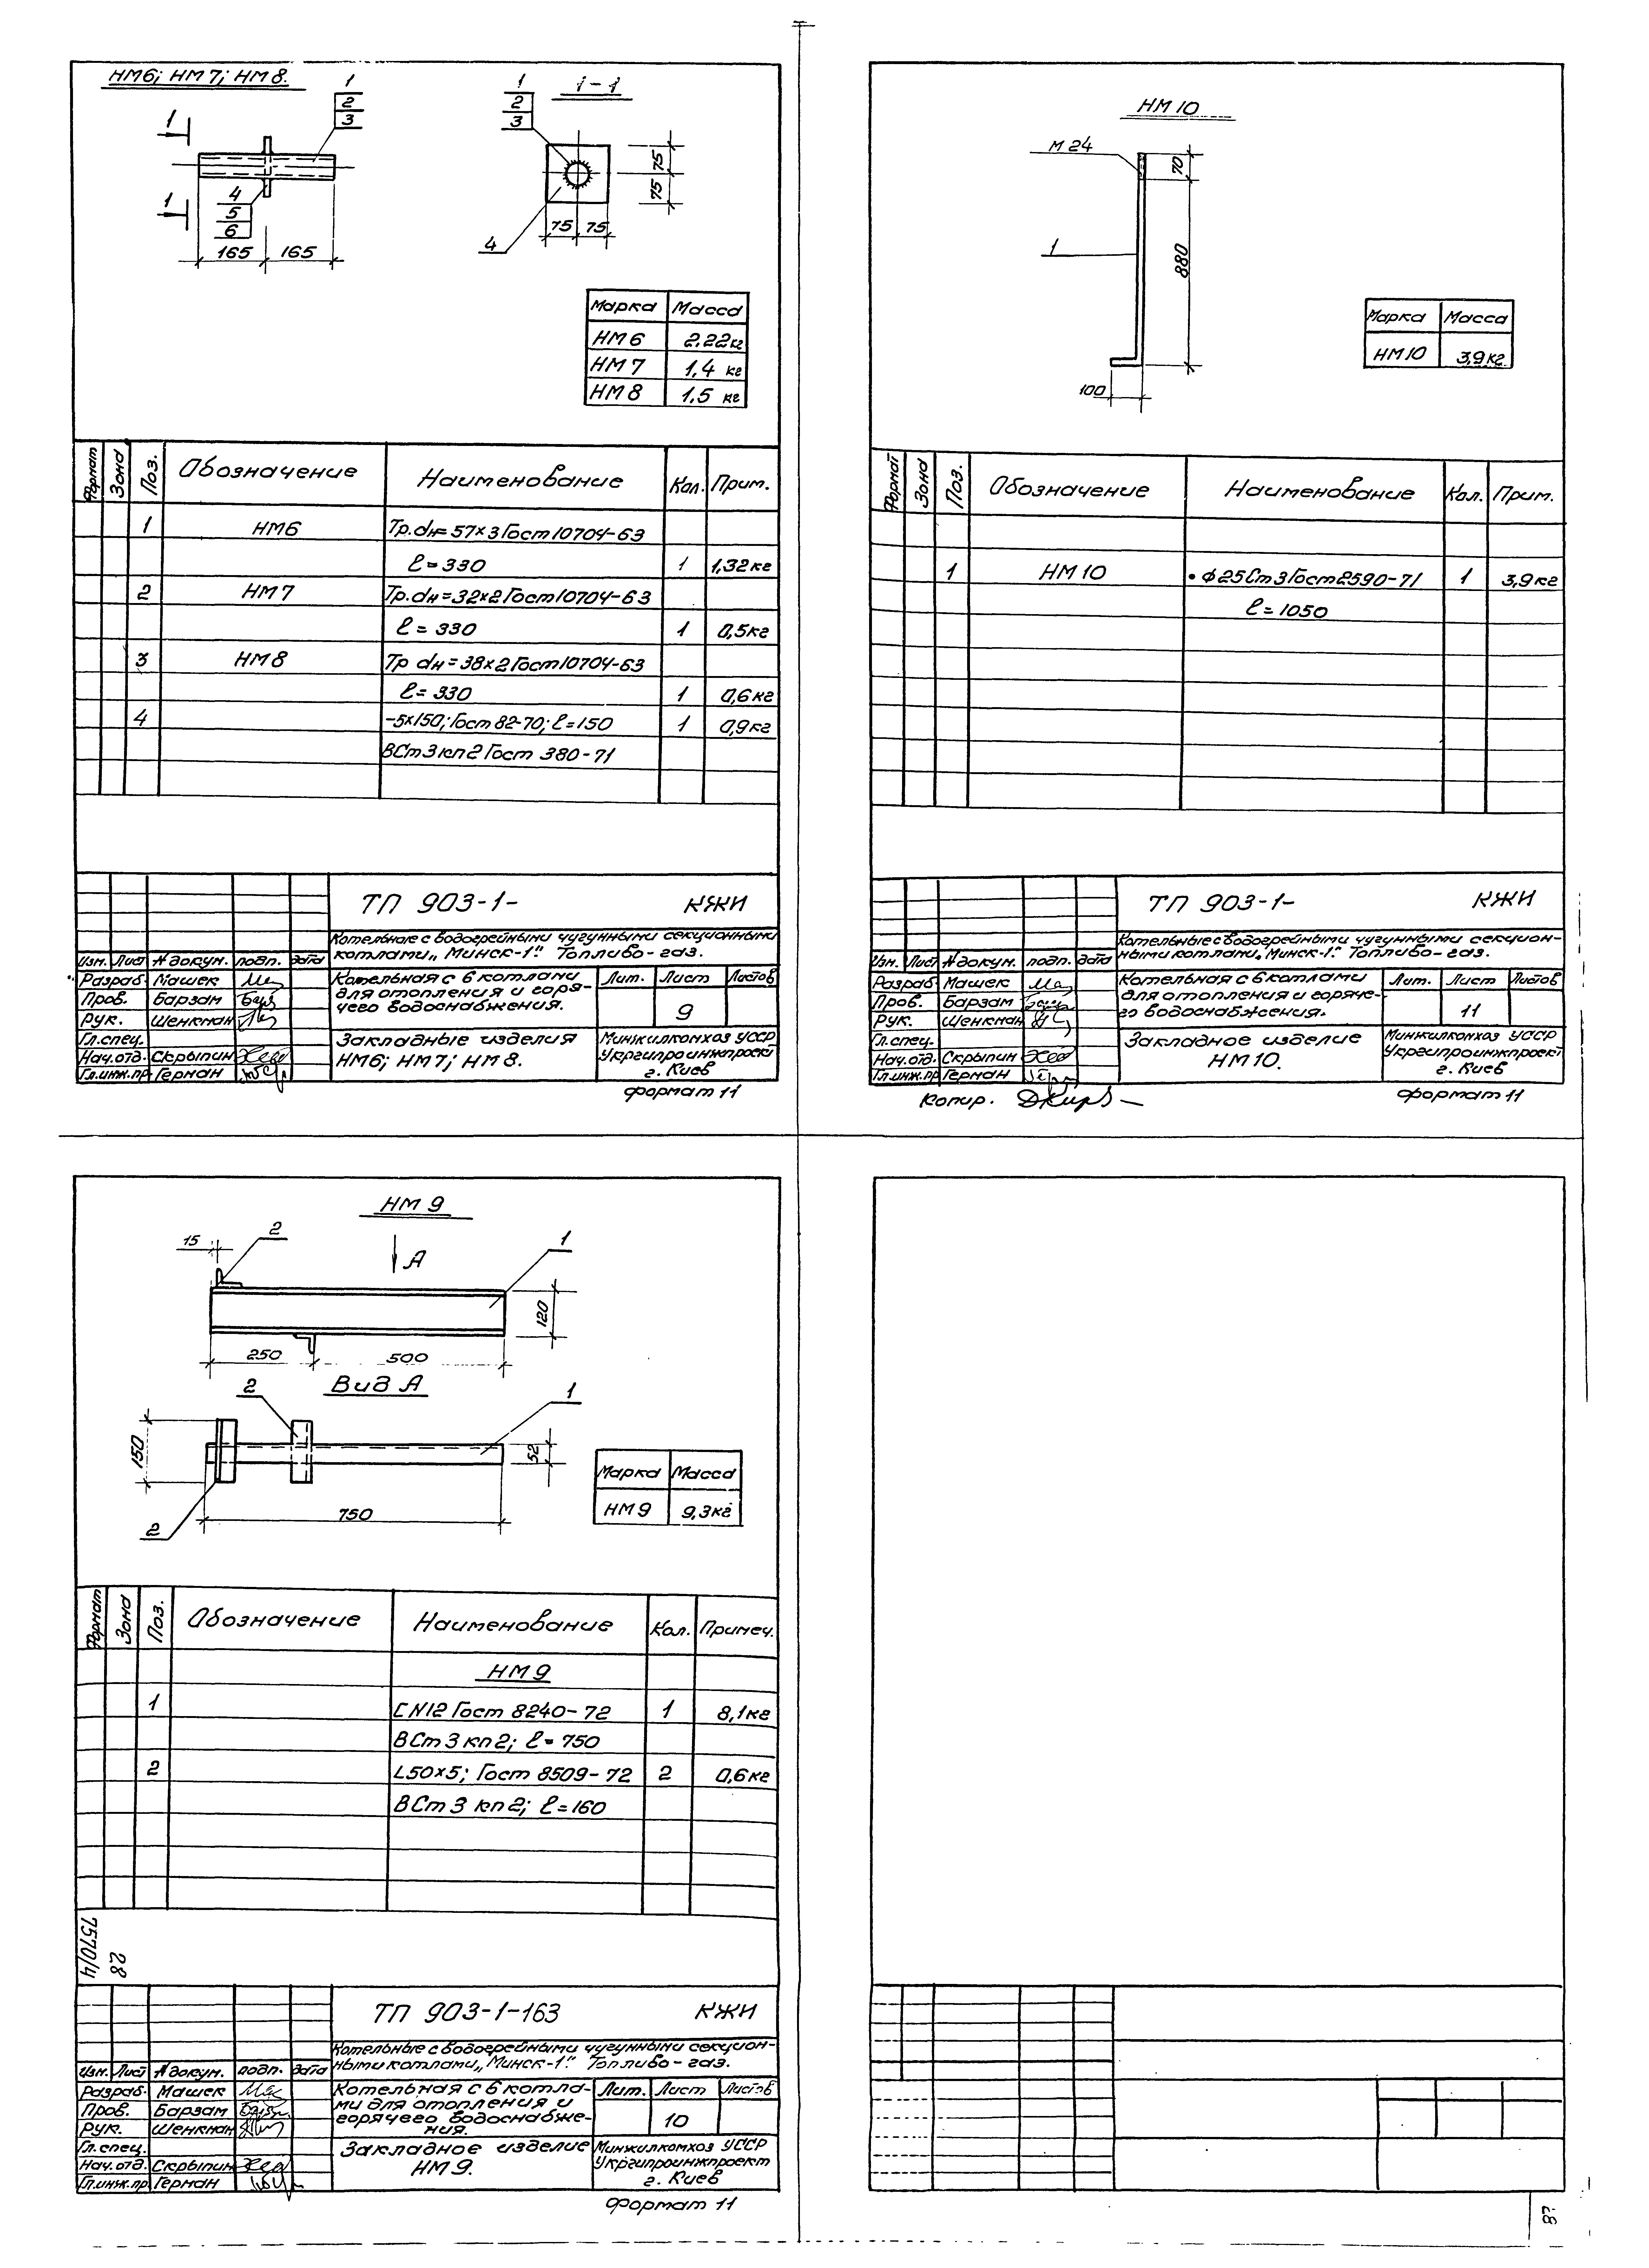 НМ6; НМ7; НМ8.
1
2
3
1
1
4
5
6
165 165
1
2
3
1-1
4
75 75
75 75
Марка Масса
НМ6 2,22кг
НМ7 1,4 кг
НМ8 1,5 кг
Формат Зона Поз. Обозначение Наименование Кол. Прим.
1 НМ6 Тр. dн=57×3 Гост 10704-63
ℓ=330 1 1,32кг
2 НМ7 Тр. dн=32×2 Гост 10704-63
ℓ=330 1 0,5кг
3 НМ8 Тр dн=38×2 Гост 10704-63
ℓ=330 1 0,6кг
4 -5×150; Гост 82-70; ℓ=150 1 0,9кг
ВСт3кп2 Гост 380-71
ТП 903-1- КЖИ
Котельные с водогрейными чугунными секционными
котлами „Минск-1". Топливо-газ.
Изм. Лист №докум. подп. дата
Разраб. Машек
Пров. Барзам
Рук. Шенкман
Гл.спец.
Нач.отд. Скрыпин
Гл.инж.пр. Герман
Котельная с 6 котлами
для отопления и горя-
чего водоснабжения.
Лит. Лист Листов
9
Закладные изделия
НМ6; НМ7; НМ8.
Минжилкомхоз УССР
Укргипроинжпроект
г. Киев
Формат 11
НМ10
М24
70
1
880
100
Марка Масса
НМ10 3,9кг
Формат Зона Поз. Обозначение Наименование Кол. Прим.
1 НМ10 •ф25Ст3 Гост 2590-71 1 3,9кг
ℓ=1050
ТП 903-1- КЖИ
Котельные с водогрейными чугунными секцион-
ными котлами „Минск-1". Топливо-газ.
Изм. Лист №докум. подп. дата
Разраб. Машек
Пров. Барзам
Рук. Шенкман
Гл.спец.
Нач.отд. Скрыпин
Гл.инж.пр Герман
Котельная с 6 котлами
для отопления и горяче-
го водоснабжения.
Лит. Лист Листов
11
Закладное изделие
НМ10.
Минжилкомхоз УССР
Укргипроинжпроект
г. Киев
Копир.
Формат 11
НМ9
15
2
А
1
120
250 500
Вид А
2
1
150
52
750
2
Марка Масса
НМ9 9,3кг
Формат Зона Поз. Обозначение Наименование Кол. Примеч.
НМ9
1 [N12 Гост 8240-72 1 8,1кг
ВСт3кп2; ℓ=750
2 L50×5; Гост 8509-72 2 0,6кг
ВСт3 кп2; ℓ=160
7570/4
28
ТП 903-1-163 КЖИ
Котельные с водогрейными чугунными секцион-
ными котлами „Минск-1". Топливо-газ.
Изм. Лист №докум. подп. дата
Разраб. Машек
Пров. Барзам
Рук. Шенкман
Гл.спец.
Нач.отд. Скрыпин
Гл.инж.пр. Герман
Котельная с 6 котла-
ми для отопления и
горячего водоснабже-
ния.
Лит. Лист Листов
10
Закладное изделие
НМ9.
Минжилкомхоз УССР
Укргипроинжпроект
г. Киев
Формат 11